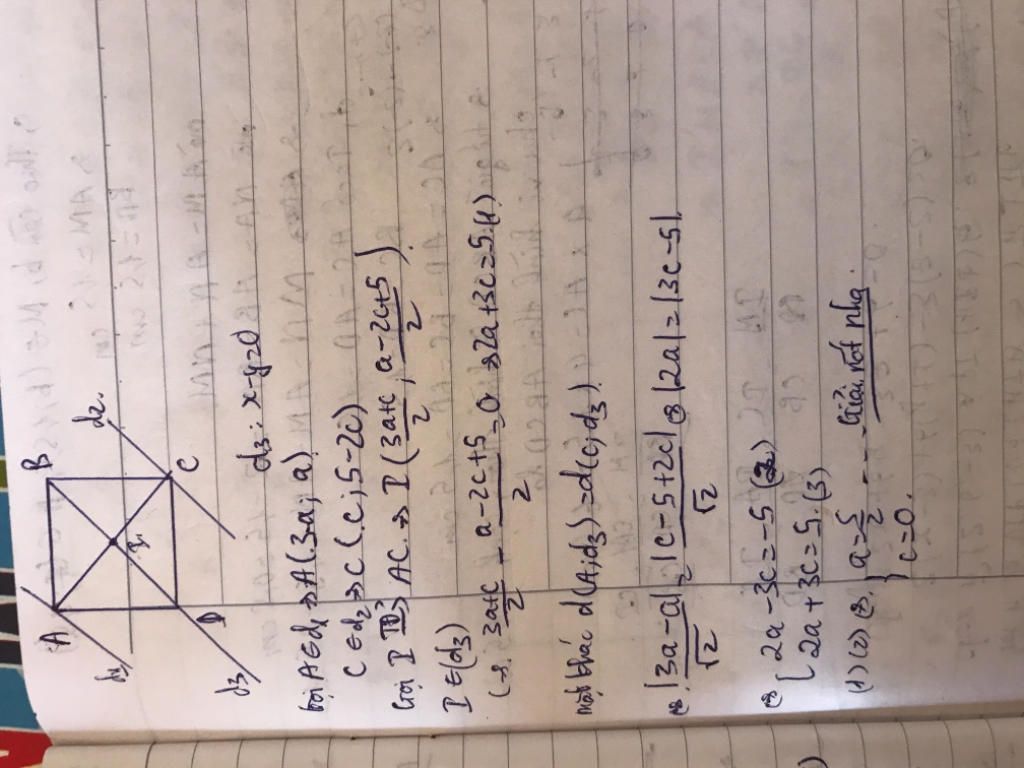 A
B
d1
d2.
I
C
D
d3
d3: x-y=0
Gọi A∈d1 => A(3a; a)
C∈d2 => C(c; 5-2c)
Gọi I AC. => I (3a+c/2 ; a-2c+5/2)
I∈(d3)
<=> 3a+c/2 - a-2c+5/2 = 0 => 2a+3c=5. (1)
mặt khác d(A;d3)=d(C;d3)
<=> |3a-a|/√2 = |c-5+2c|/√2 <=> |2a|=|3c-5|
<=> [ 2a-3c=-5 (2)
2a+3c=5. (3)
(1)(2) <=> { a=5/2 --- Giải nốt nha.
c=0.